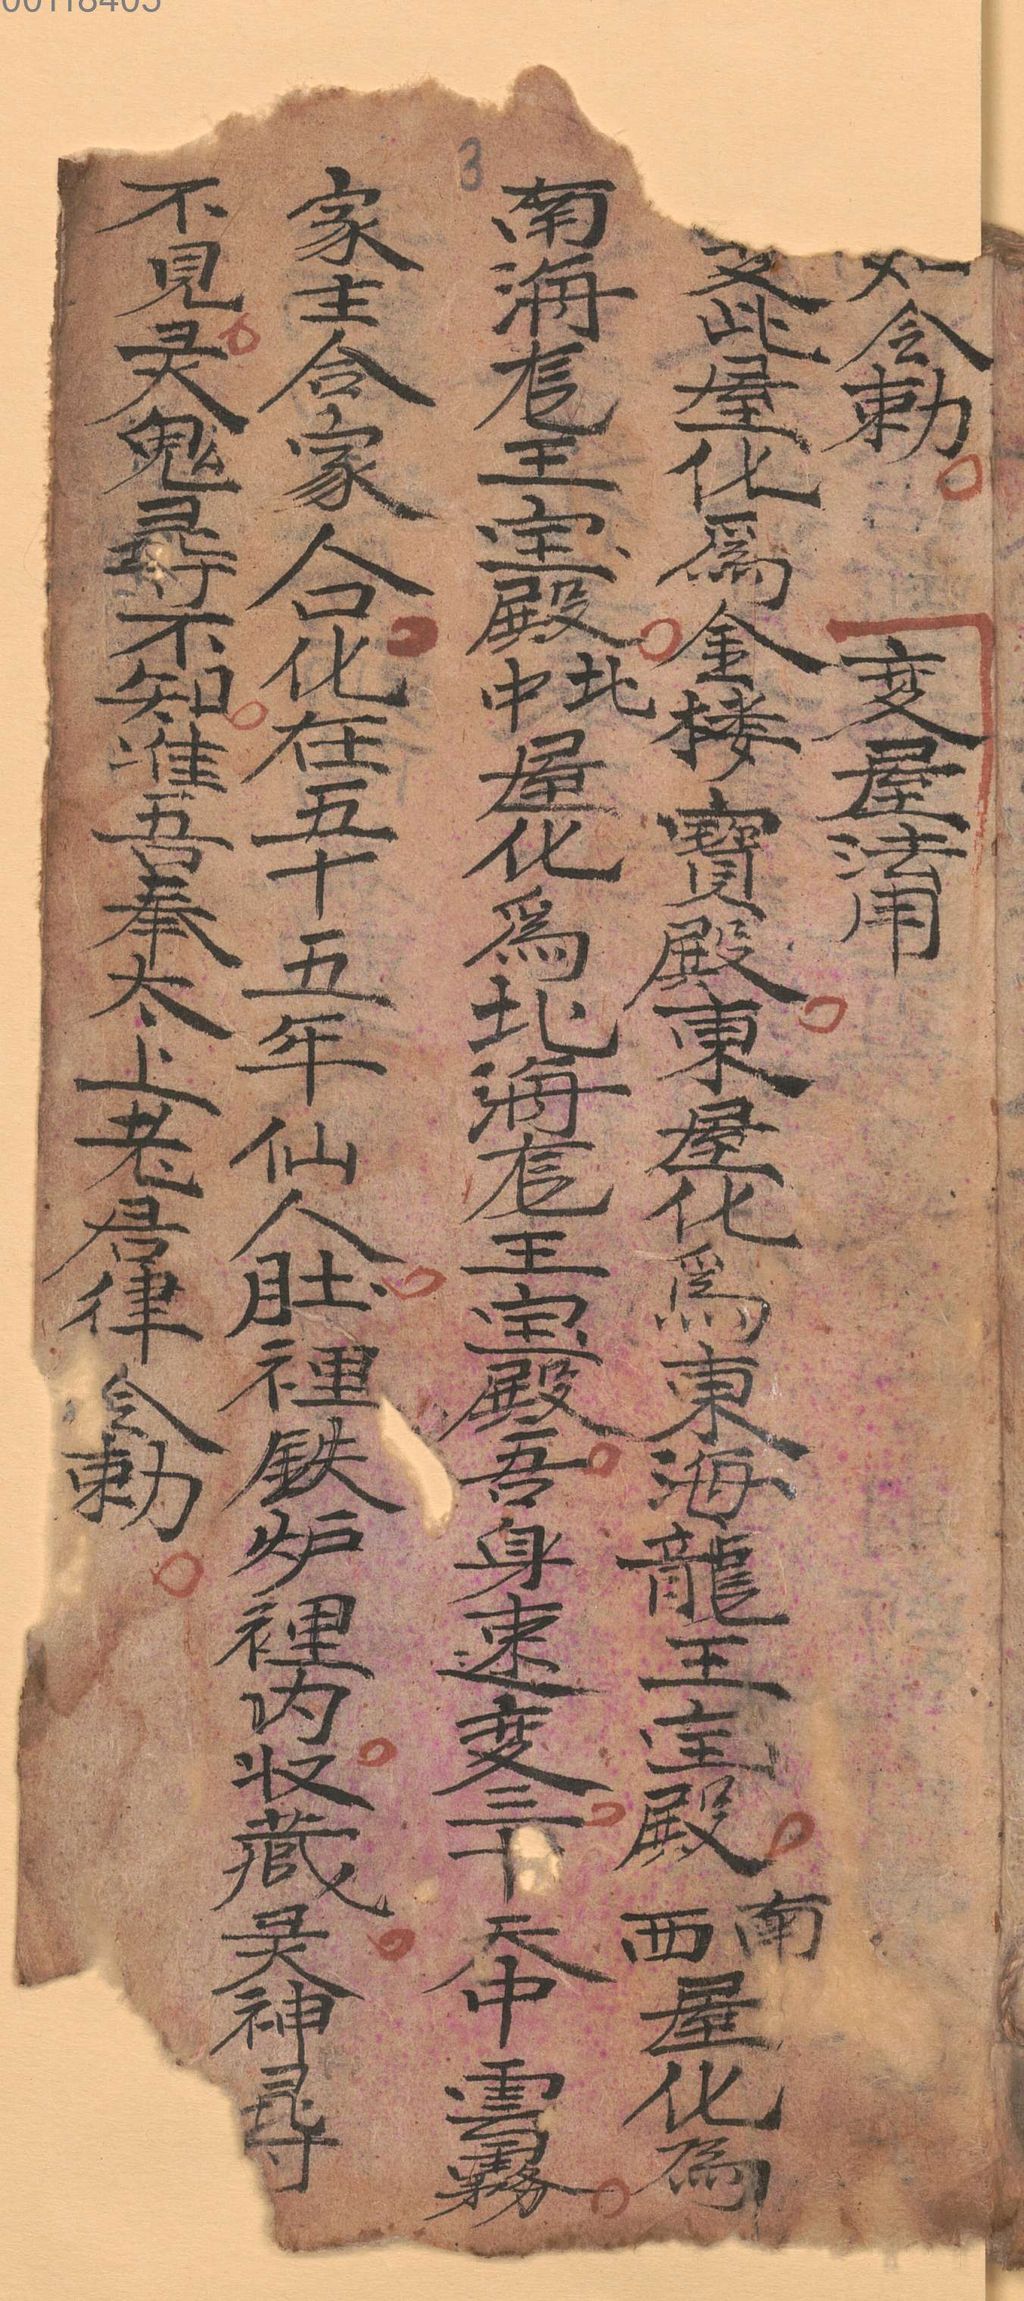 如令勅 変屋法用
变此屋化爲金楼寳殿東屋化爲東海龍王宝殿南西屋化爲
南海尨王宝殿北中屋化爲北海尨王宝殿吾身速变三十天中雲霧
家主合家人口化在五十五年仙人肚裡鉄炉裡内収藏灵神尋
不見灵鬼尋不知准吾奉太上老君律令勅
3
00118405